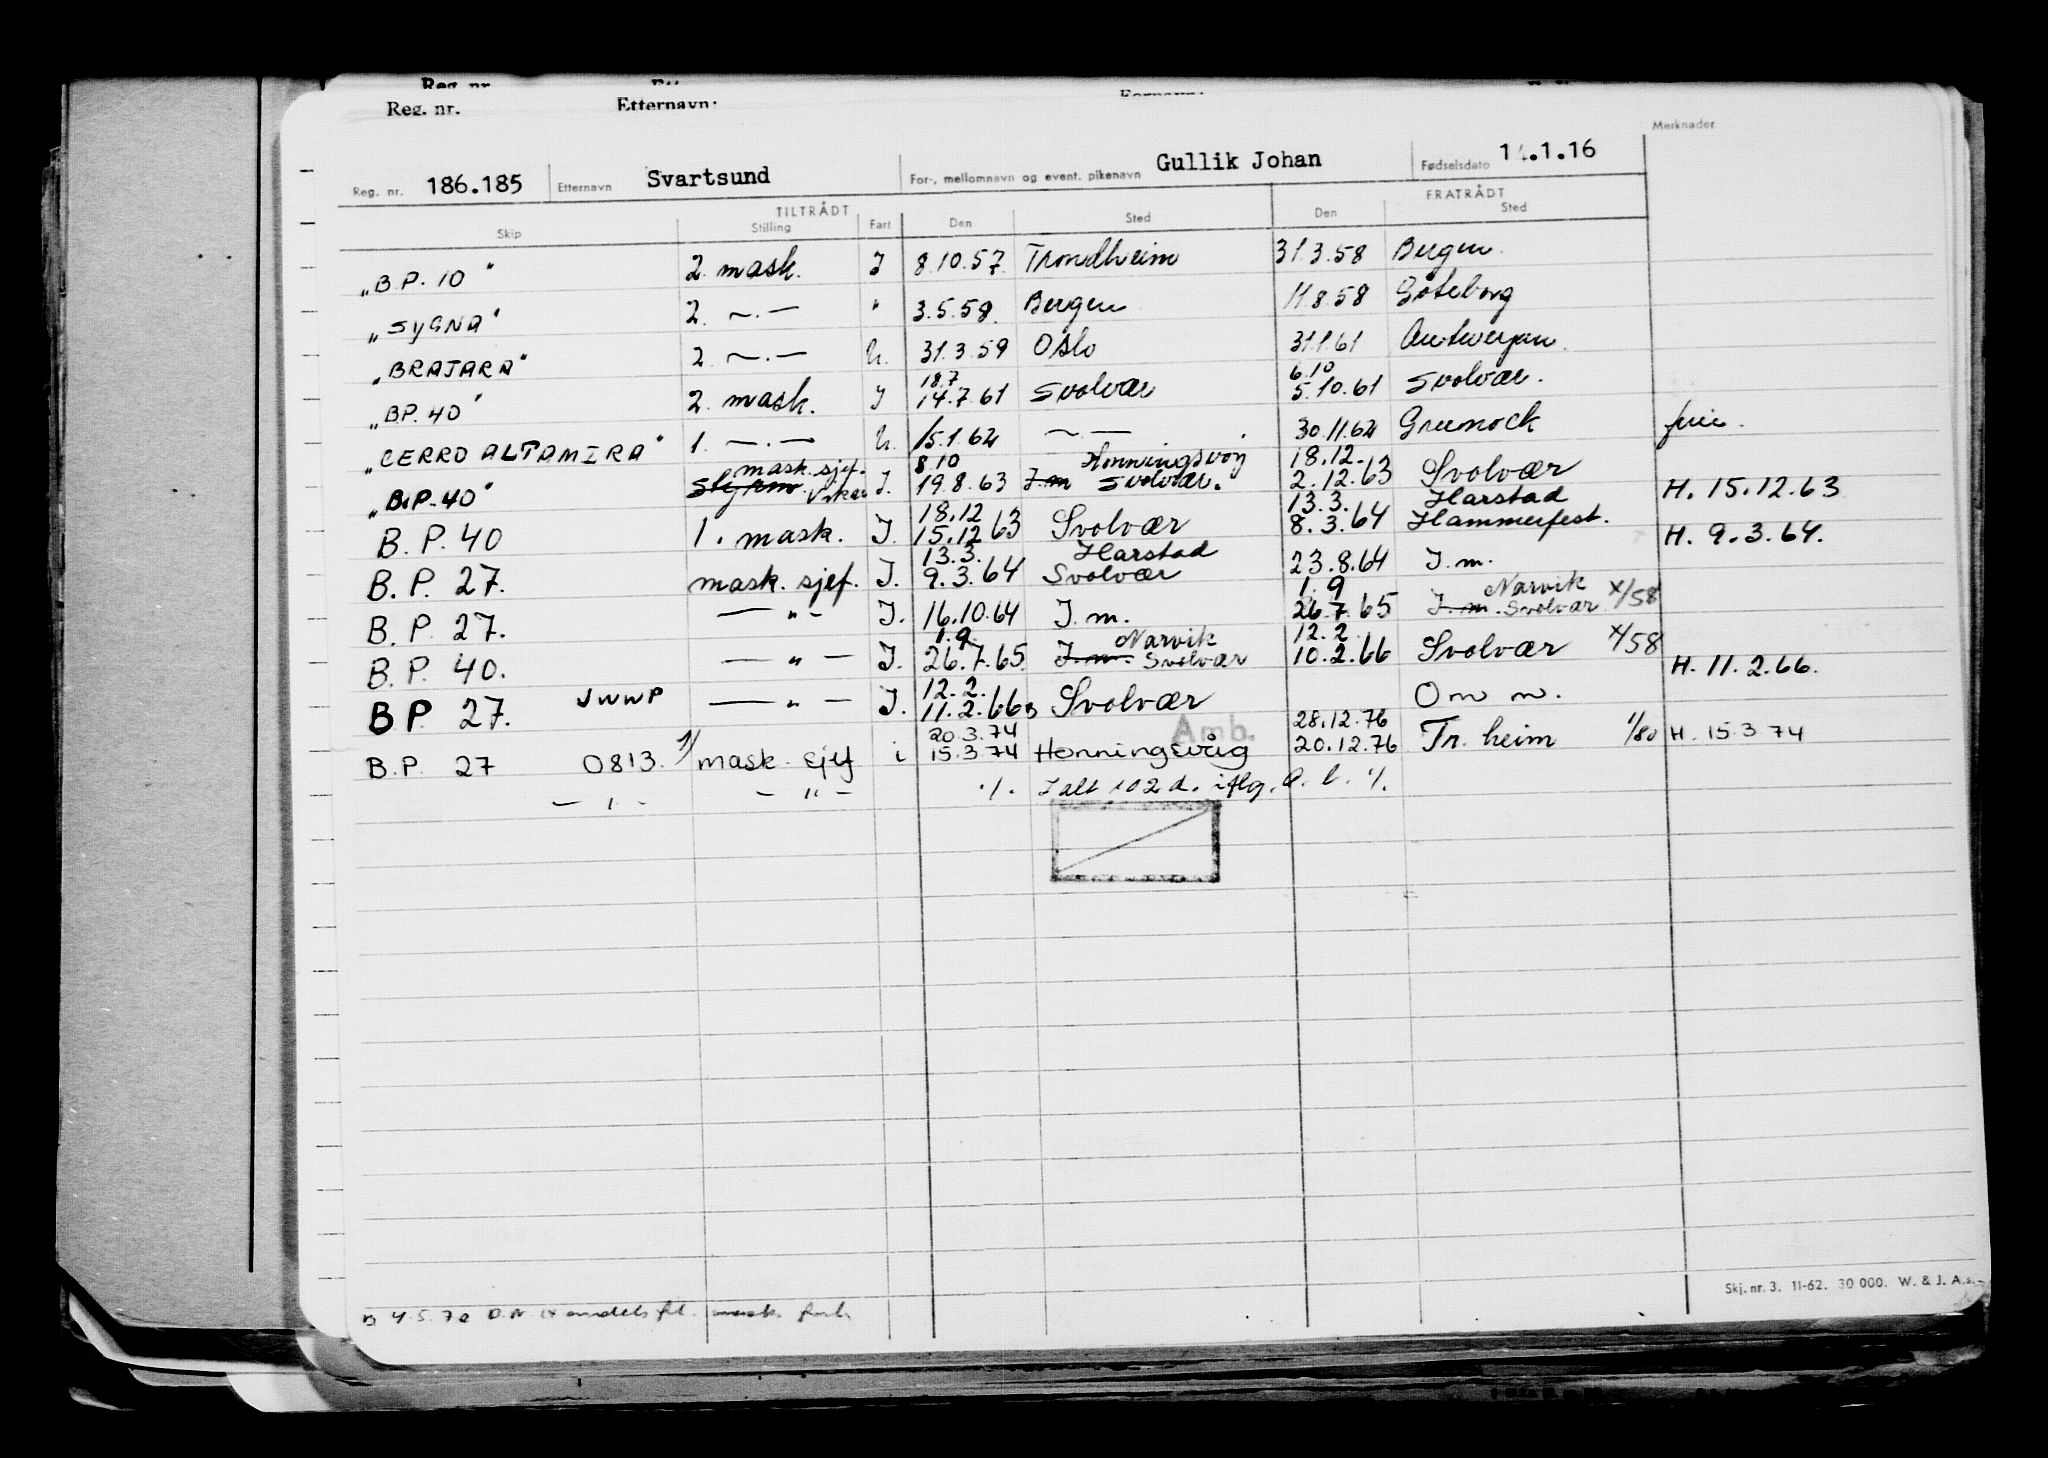 Reg. nr. Etternavn:
Reg. nr. 186.185 Etternavn Svartsund For-, mellomnavn og event. pikenavn Gullik Johan Fødselsdato 14.1.16 Merknader
TILTRÅDT FRATRÅDT
Skip Stilling Fart Den Sted Den Sted
"B.P. 10" 2. mask. I 8.10.57 Trondheim 31.3.58 Bergen.
"SYGNA" 2. —.— " 3.5.58. Bergen 11.8.58 Göteborg
"BRAJARA" 2 —.— U. 31.3.59 Oslo 31.1.61 Antwerpen.
18.7 6.10
"B.P. 40" 2. mask. I 14.7.61 Svolvær 5.10.61 Svolvær.
"CERRO ALTAMIRA" 1. —.— U. 15.1.62 —.— 30.11.62 Greenock
mask. sjef. 8.10 Honningsvåg 18.12.
"B.P. 40" Styrm. Vikar I. 19.8.63 I.m Svolvær. 2.12.63 Svolvær H. 15.12.63
18.12 13.3. Harstad
B.P. 40 1. mask. I. 15.12.63 Svolvær 8.3.64 Hammerfest. H. 9.3.64.
13.3. Harstad
B.P. 27. mask. sjef. I. 9.3.64 Svolvær 23.8.64 I.m.
1.9 Narvik
B.P. 27. — " — I. 16.10.64 I.m. 26.7.65 I.m. Svolvær x/58
1.9. Narvik 12.2.
B.P. 40. — " — I. 26.7.65. I.m. Svolvær 10.2.66 Svolvær x/58 H. 11.2.66.
12.2.
B P. 27. JWWP — " — I. 11.2.66 B Svolvær Om m.
20.3.74 Amb. 28.12.76
B.P. 27 0813. 1/ mask. sjef i 15.3.74 Honningsvåg 20.12.76 Tr. heim 1/80 H. 15.3.74
— " — — " — ·/. I alt 102 d. iflg. a. b. ·/.
B 4.5.70 mask.
Skj. nr. 3. 11-62. 30 000. W. & J. A.s.